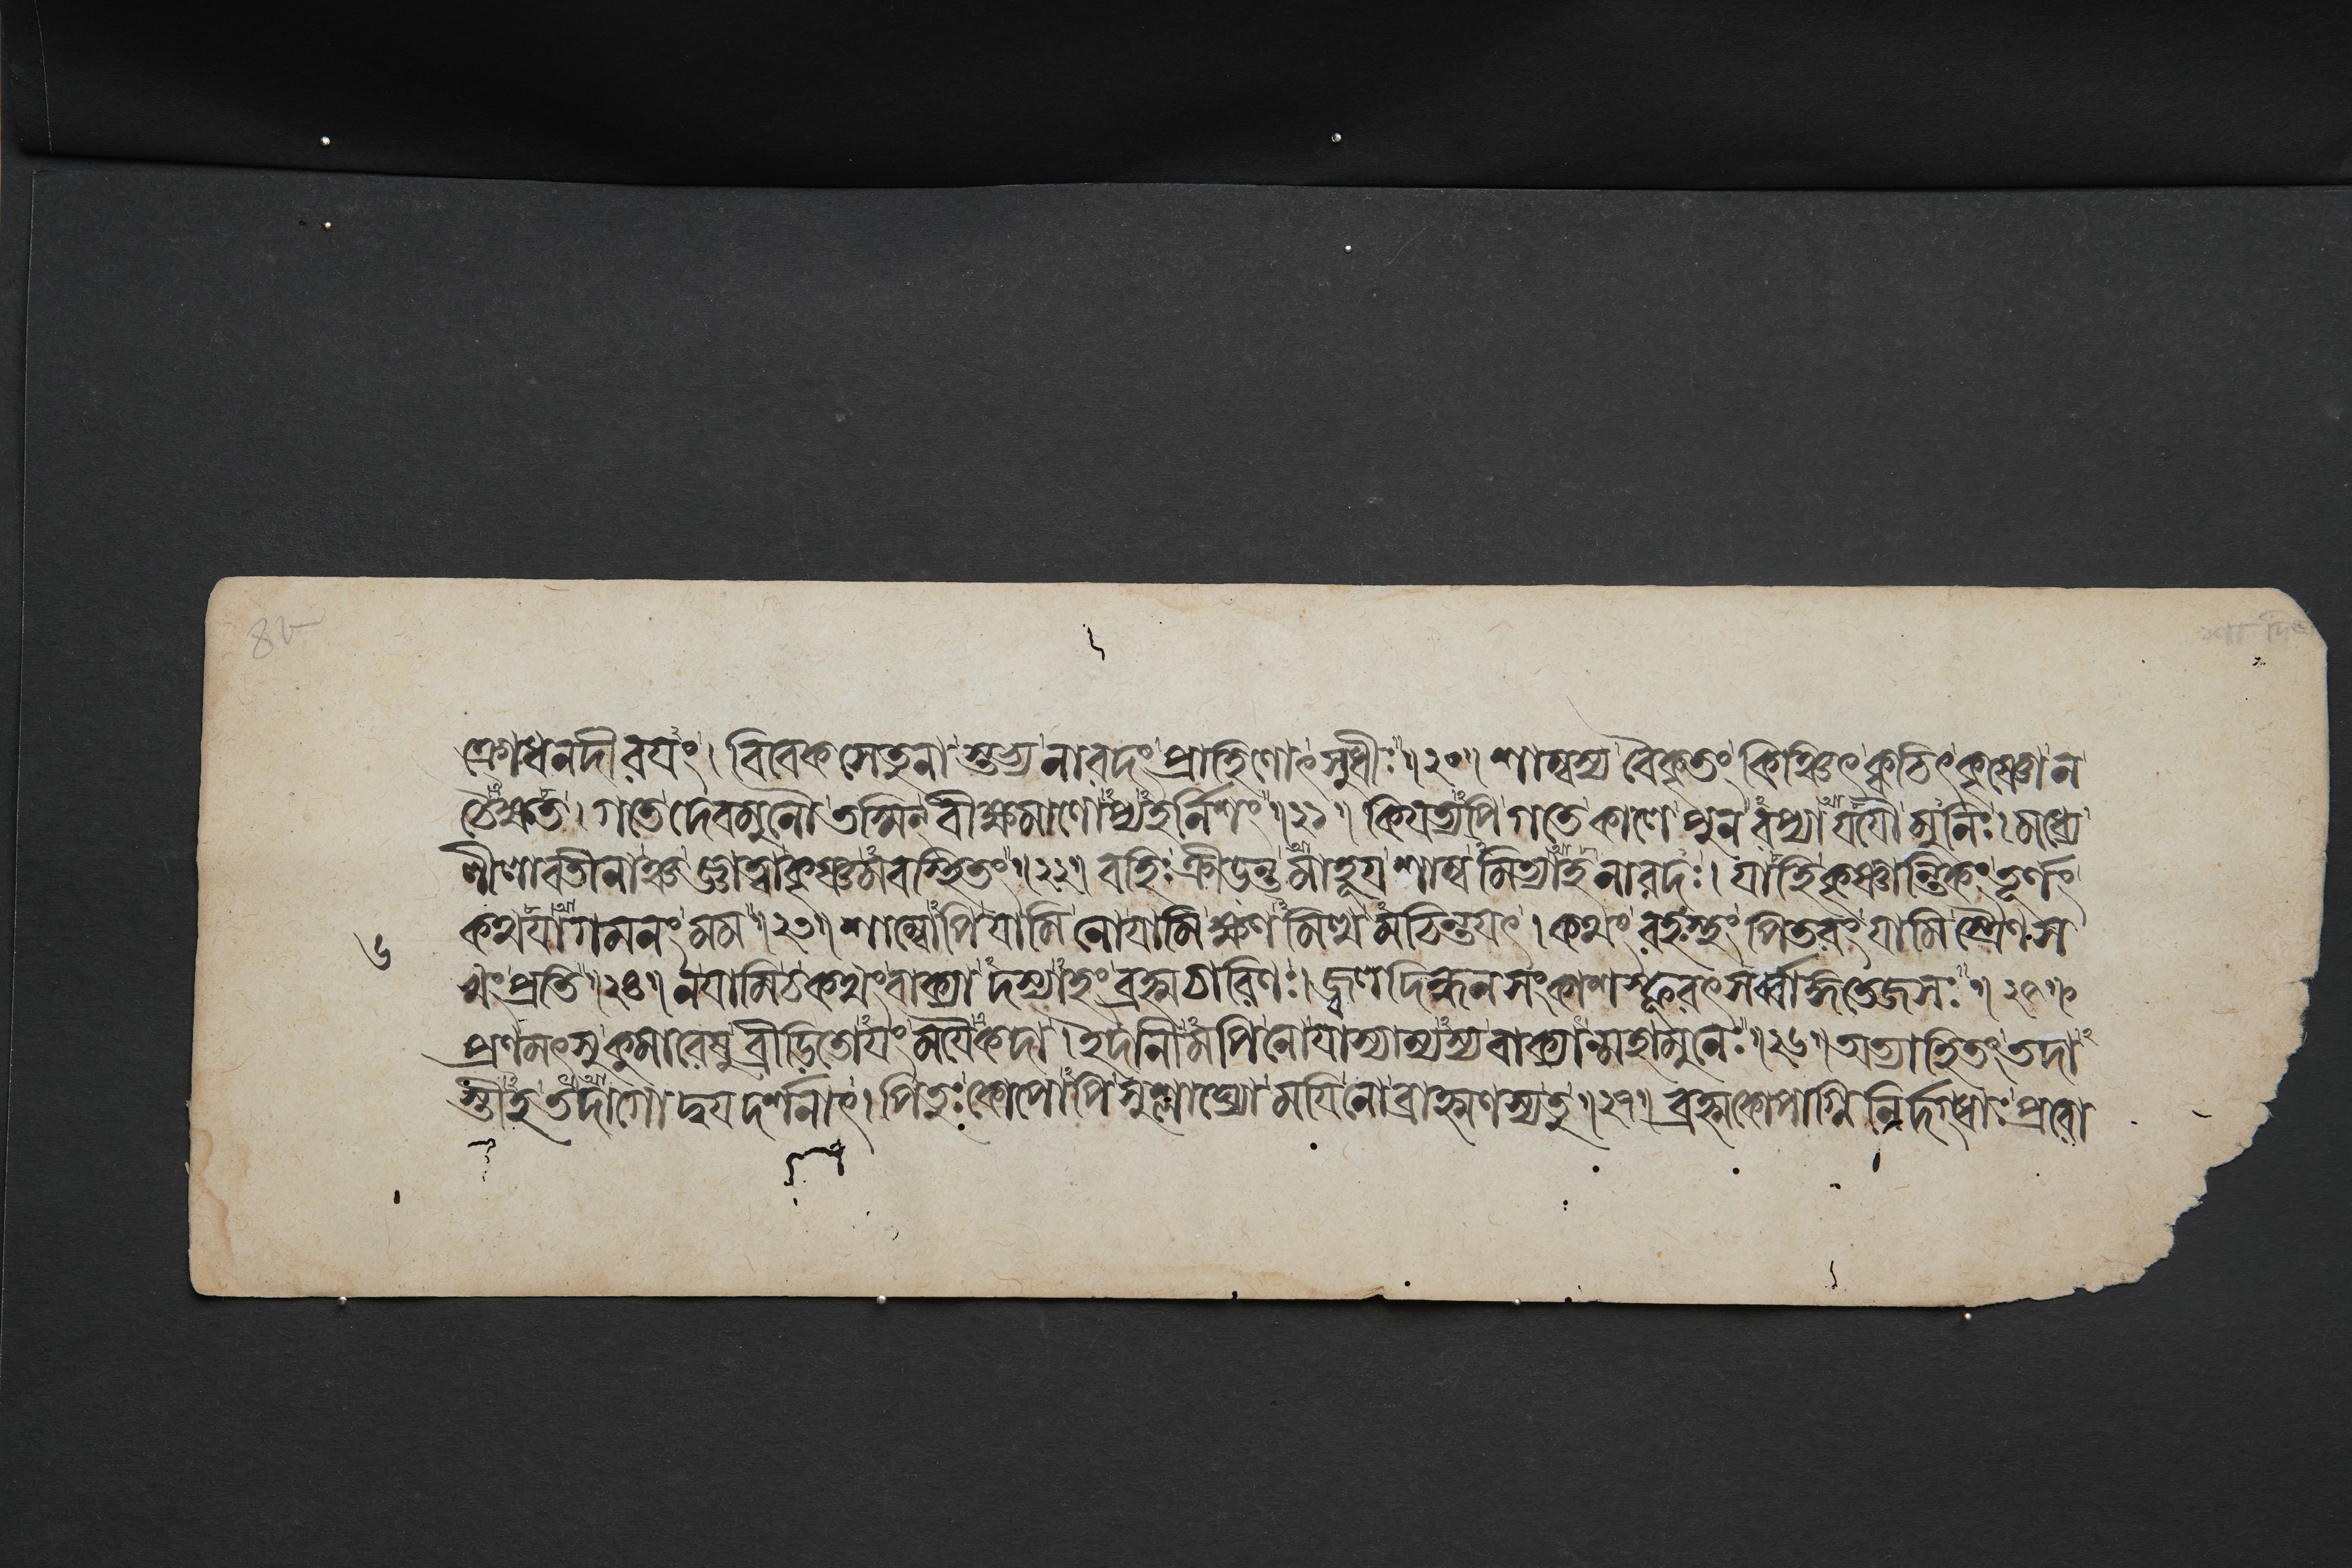 ৪৮
শা দি
ক্রোধনদীরযং। বিবেকসেতুনা স্তভ্য নারদং প্রাহিণোৎ সুধীঃ॥২০॥ শাম্বস্য বৈকৃতং কিঞ্চিৎ ক্বচিৎ কৃষ্ণোন
চৈক্ষত। গতে দেবমুনৌ তস্মিন্ বীক্ষমাণোপ্যহর্নিশং॥২১॥ কিযত্যপি গতে কালে পুনরপ্যাযযৌ মুনিঃ। মধ্যে
লীলাবতীনাঞ্চ জ্ঞাত্বা কৃষ্ণমবস্থিতং॥২২॥ বহিঃ ক্রীডন্তমাহূয শাম্বমিত্যাহ নারদঃ। যাহি কৃষ্ণান্তিকং তূর্ণং
কথযাগমনং মম॥২৩॥ শাম্বোপি যামি নোযামি ক্ষণমিত্থমচিন্তযৎ। কথং রহস্থং পিতরং যামি স্ত্রৈণস
খং প্রতি॥২৪॥ নযামি চ কথং বাক্যাদস্যাহং ব্রহ্মচারিণঃ। জ্বলদিন্ধনসংকাশস্ফুরৎসর্ব্বাঙ্গতেজসঃ॥২৫॥
৬
প্রণমৎসু কুমারেষু ব্রীড়িতোযং মযৈকদা। ইদানীমপি নোযাস্যাম্যস্য বাক্যান্মহামুনেঃ॥২৬॥ অত্যাহিতং তদা
স্তাহ তদাগোদ্বযদর্শনাৎ। পিতুঃ কোপোপি সুশ্লাঘ্যো মযি নো ব্রাহ্মণস্য তু॥২৭॥ ব্রহ্মকোপাগ্নিনির্দগ্ধাঃ প্ররো